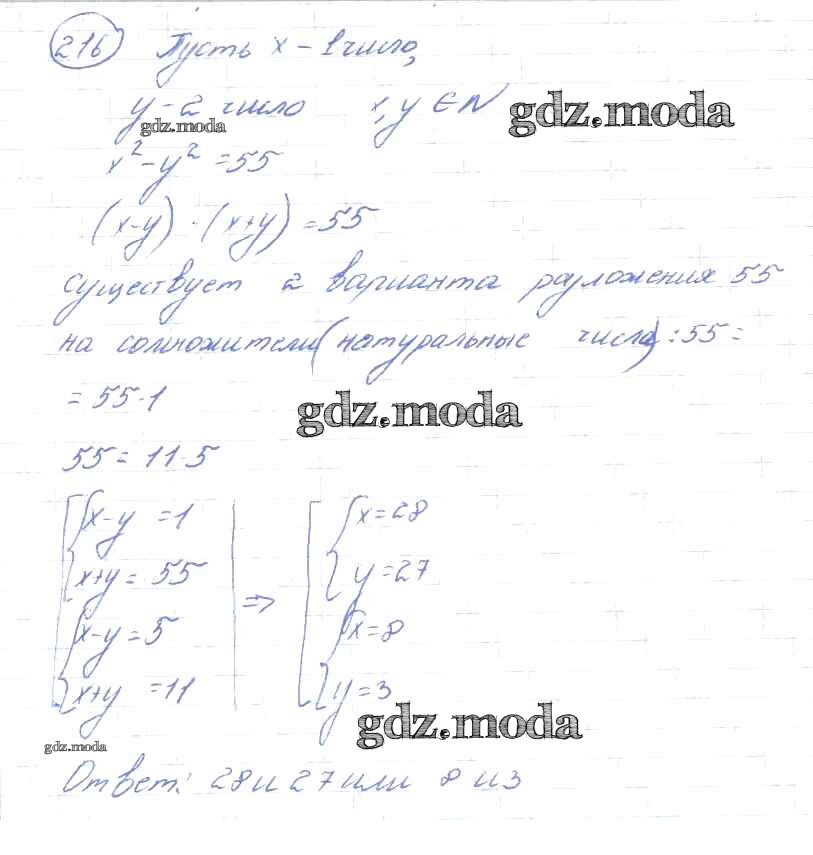 216 Пусть x - 1 число,
y - 2 число x, y ∈ N
gdz.moda
gdz.moda
x² - y² = 55
(x-y) · (x+y) = 55
существует 2 варианта разложения 55
на сомножители (натуральные числа): 55 =
= 55·1
gdz.moda
55 = 11·5
x-y = 1
x+y = 55
x-y = 5
x+y = 11
=>
x = 28
y = 27
x = 8
y = 3
gdz.moda
gdz.moda
Ответ: 28 и 27 или 8 и 3